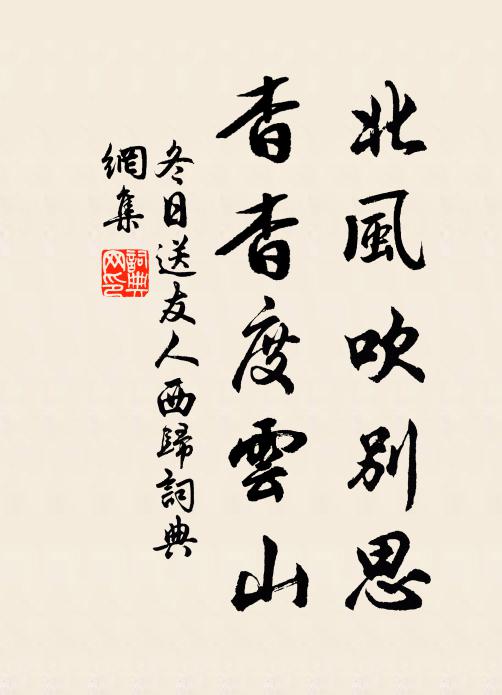 北風吹別思
杳杳度雲山
冬日送友人西歸詞典
網集
詞典
网印